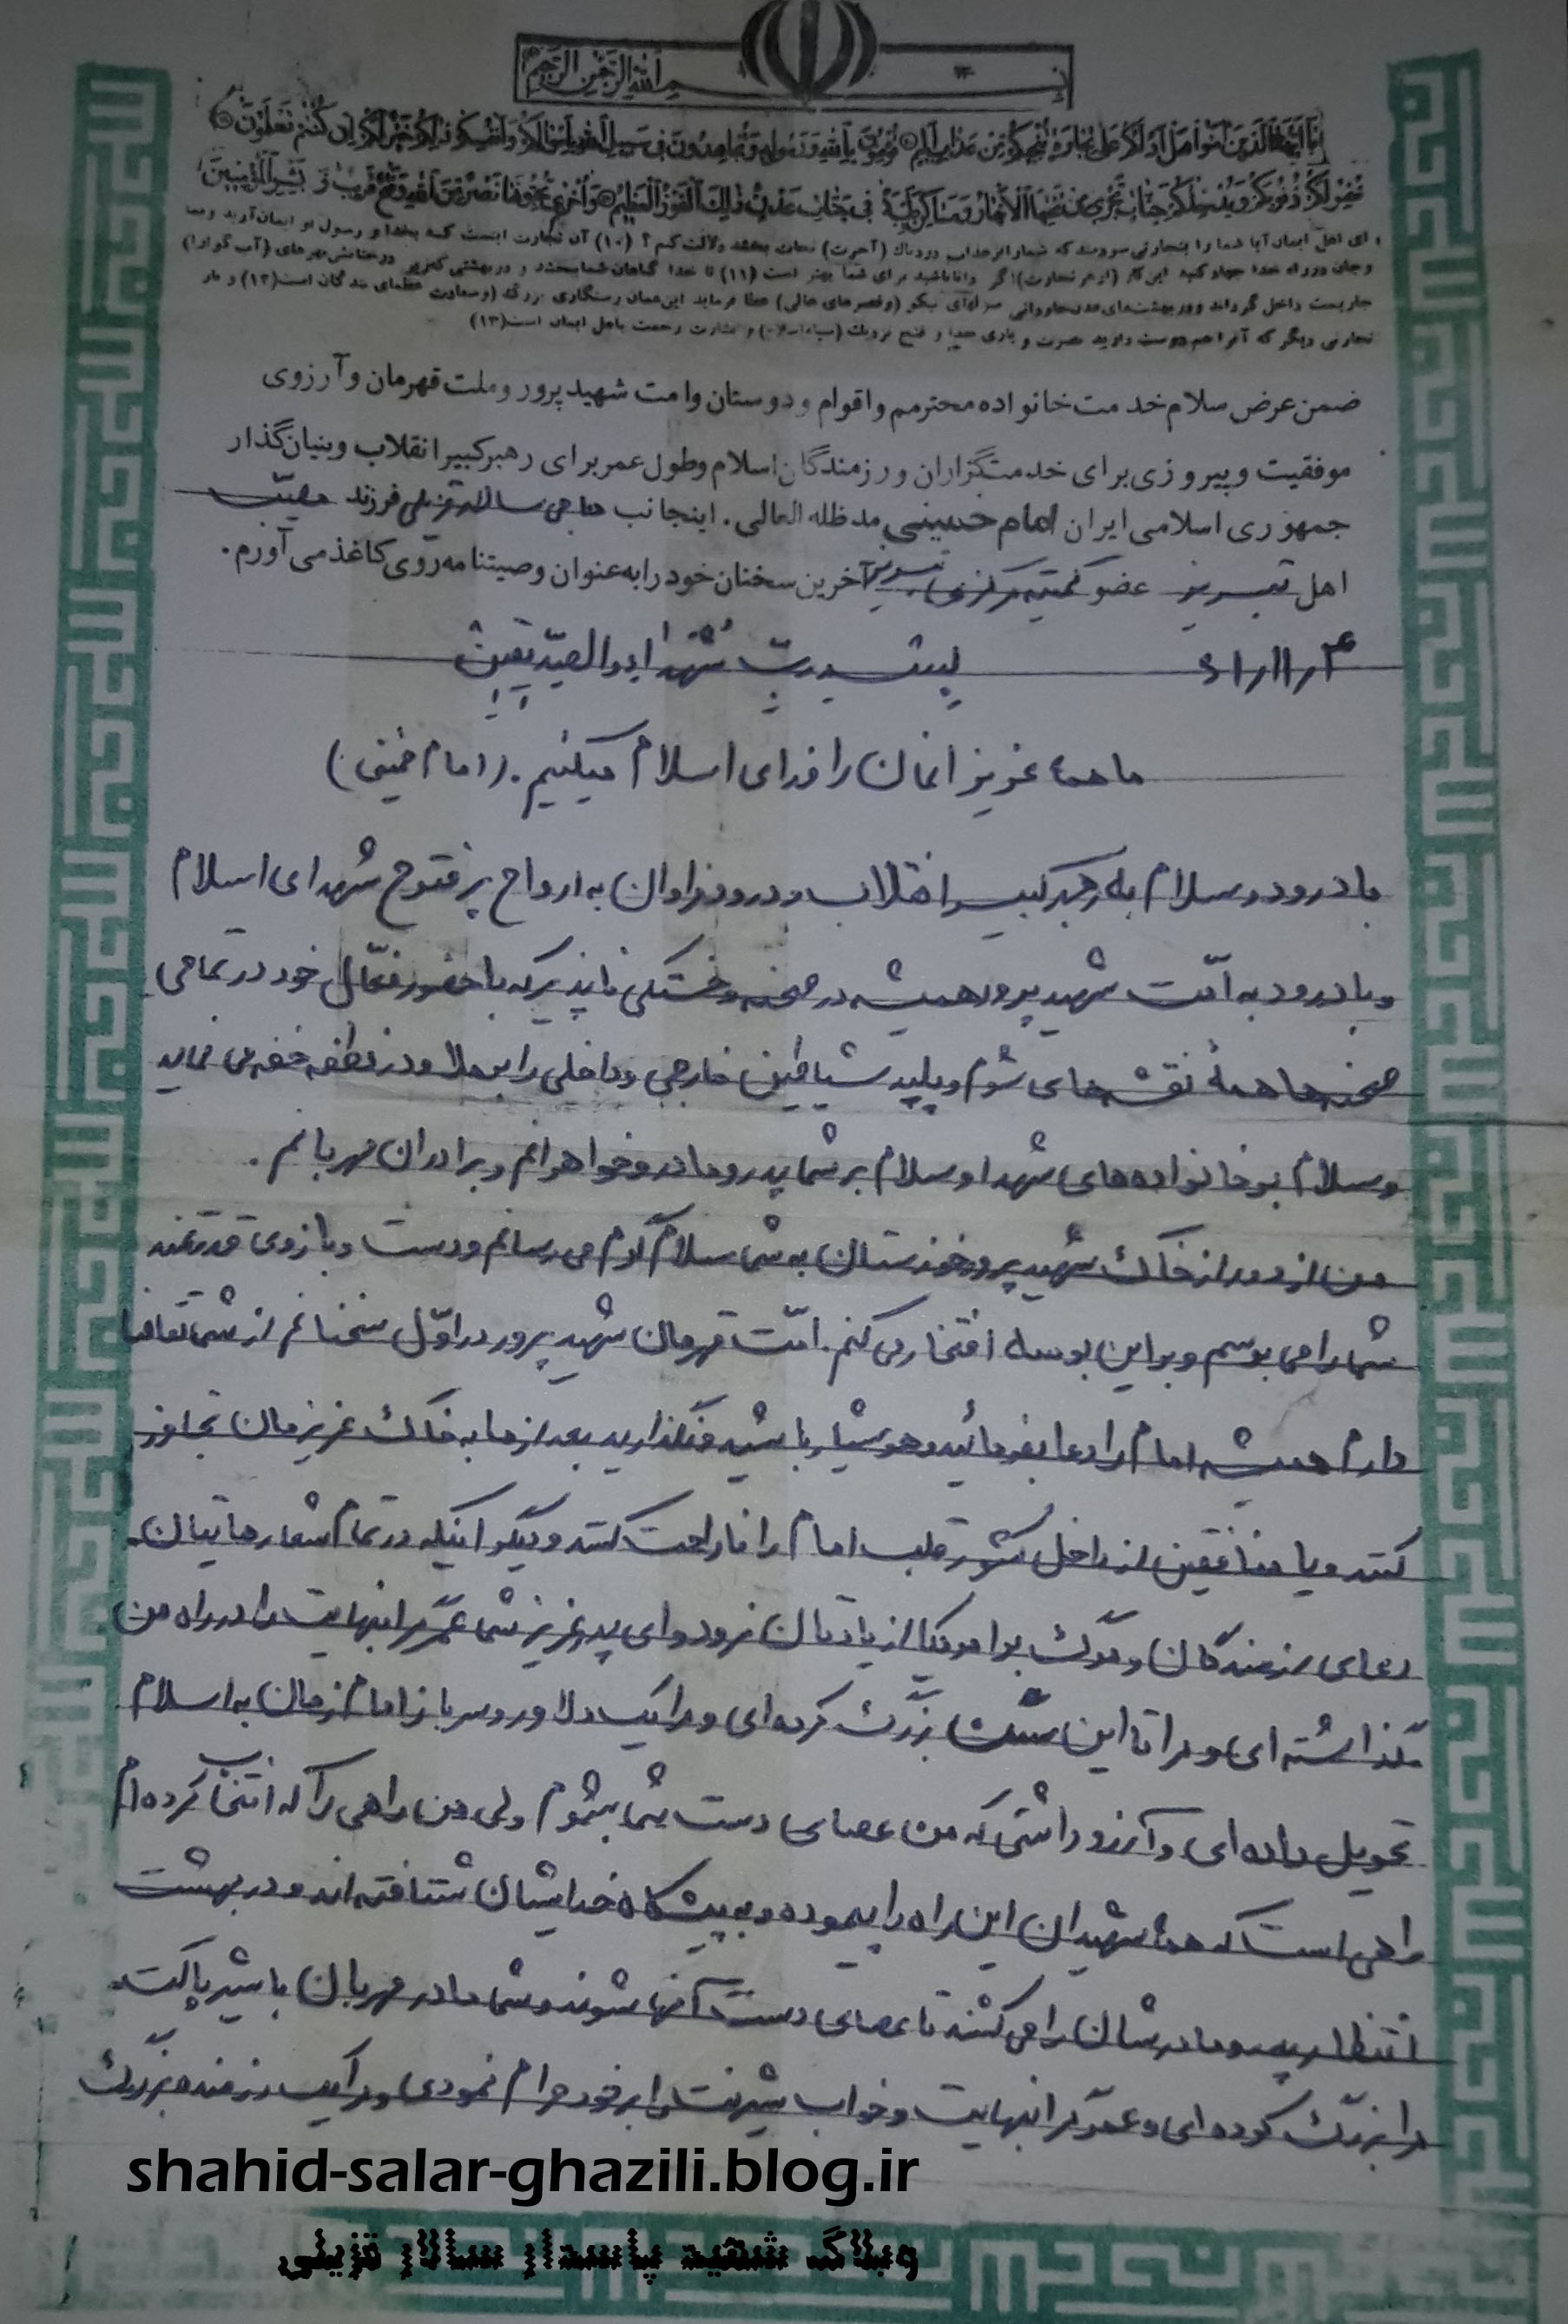 بسم الله الرحمن الرحیم
یا ایها الذین آمنوا هل ادلکم علی تجارة تنجیکم من عذاب الیم تؤمنون بالله و رسوله و تجاهدون فی سبیل الله باموالکم و انفسکم ذلکم خیر لکم ان کنتم تعلمون
یغفر لکم ذنوبکم و یدخلکم جنات تجری من تحتها الانهار و مساکن طیبة فی جنات عدن ذلک الفوز العظیم و اخری تحبونها نصر من الله و فتح قریب و بشر المؤمنین
ای اهل ایمان آیا شما را بتجارتی سودمند که شما را از عذاب دردناك (آخرت) نجات بخشد دلالت کنم؟ (۱۰) آن تجارت اینست که بخدا و رسول او ایمان آرید و بما
و جان در راه خدا جهاد کنید این کار (از هر تجارت) اگر دانا باشید برای شما بهتر است (۱۱) تا خدا گناهان شما ببخشد و در بهشتی که زیر درختانش نهرهای (آب گوارا)
جاریست داخل گرداند و در بهشت‌های عدن جاودانی منزلهای نیکو (و قصرهای عالی) عطا فرماید این همان رستگاری بزرگ (و سعادت عظمای بندگان است(۱۲) و باز
تجارتی دیگر که آنرا هم دوست دارید نصرت و یاری خدا و فتح نزدیك (سپاه اسلام) و بشارت رحمت باهل ایمان است(۱۳)
ضمن عرض سلام خدمت خانواده محترمم و اقوام و دوستان وامت شهید پرور و ملت قهرمان و آرزوی
موفقیت و پیروزی برای خدمتگزاران و رزمندگان اسلام وطول عمر برای رهبرکبیر انقلاب و بنیان‌گذار
جمهوری اسلامی ایران امام خمینی مدظله العالی. اینجانب حاجی سالار قزیلی فرزند مصیّب
اهل تبریز عضو کمیته مرکزی تبریز آخرین سخنان خود را به عنوان وصیتنامه روی کاغذ می آورم.
۶۱/۱۱/۴ بسم رب الشهدا و الصدیقین
ما همهٔ عزیزانمان را فدای اسلام میکنیم. (امام خمینی)
با درود و سلام به رهبر کبیر انقلاب و درود فراوان به ارواح پر فتوح شهدای اسلام
و با درود به امّت شهید پرور همیشه در صحنه و خستگی ناپذیر که با حضور فعّال خود در تمامی
صحنه‌ها همهٔ نقشه‌های شوم و پلید شیاطین خارجی و داخلی را برملا و در نطفه خفه می نماید
و سلام بر خانواده‌های شهدا و سلام بر شما پدر و مادر و خواهرانم و برادران مهربانم.
من از دور از خاك شهید پرور خوزستان به شما سلام گرم می رسانم و دست و بازوی قدرتمند
شما را می بوسم و بر این بوسه افتخار می کنم. امّت قهرمان شهید پرور در اوّل سخنانم از شما تقاضا
دارم همیشه امام را دعا بفرمائید و هوشیار باشید و نگذارید بعد از ما به خاك عزیزمان تجاوز
کنند و یا منافقین از داخل کشور قلب امام را ناراحت کنند و دیگر اینکه در تمام شعارهایتان
دعای رزمندگان و مرگ بر امریکا از یادتان نرود و ای پدر عزیز شما عمر گرانبهایت را در راه من
گذاشته‌ای و مرا تا این سنّ بزرگ کرده‌ای و مرا یک دلاور و سرباز امام زمان به اسلام
تحویل داده‌ای و آرزو داشتی که من عصای دست شما بشوم ولی من راهی را که انتخاب کرده‌ام
راهی است که همهٔ شهیدان این راه را پیموده و به پیشگاه خدایشان شتافته‌اند و در بهشت
انتظار پدر و مادرشان را می کشند تا عصای دست آنها شوند و شما مادر مهربان با شیر پاکت
مرا بزرگ کرده‌ای و عمر گرانبهایت و خواب شیرینت را بر خود حرام نمودی و مرا یک رزمنده بزرگ
shahid-salar-ghazili.blog.ir
وبلاگ شهید پاسدار سالار قزیلی